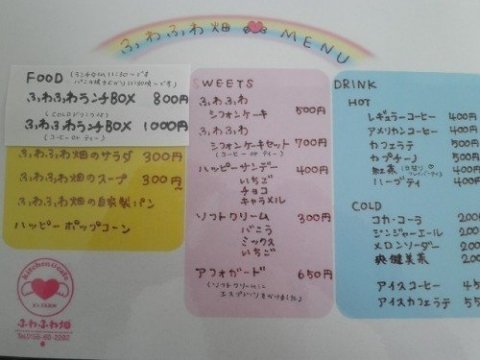 ふわふわ畑 MENU
FOOD
ふわふわランチBOX 800円
(COLDドリンク付)
ふわふわランチBOX 1000円
(コーヒー or ティー)
ふわふわ畑のサラダ 300円
ふわふわ畑のスープ 300円〜
ふわふわ畑の自家製パン
ハッピーポップコーン
Kitchen&cafe
ふわふわ畑
SWEETS
ふわふわ
シフォンケーキ 500円
ふわふわ
シフォンケーキセット 700円
(コーヒー or ティー)
ハッピーサンデー 400円
いちご
チョコ
キャラメル
ソフトクリーム 300円
バニラ
ミックス
いちご
アフォガード 650円
DRINK
HOT
レギュラーコーヒー 400円
アメリカンコーヒー 400円
カフェラテ 500円
カプチーノ 500円
紅茶 400円
ハーブティ 400円
COLD
コカ・コーラ 200
ジンジャーエール 200
メロンソーダー 200
爽健美茶 200
アイスコーヒー 45
アイスカフェラテ 55